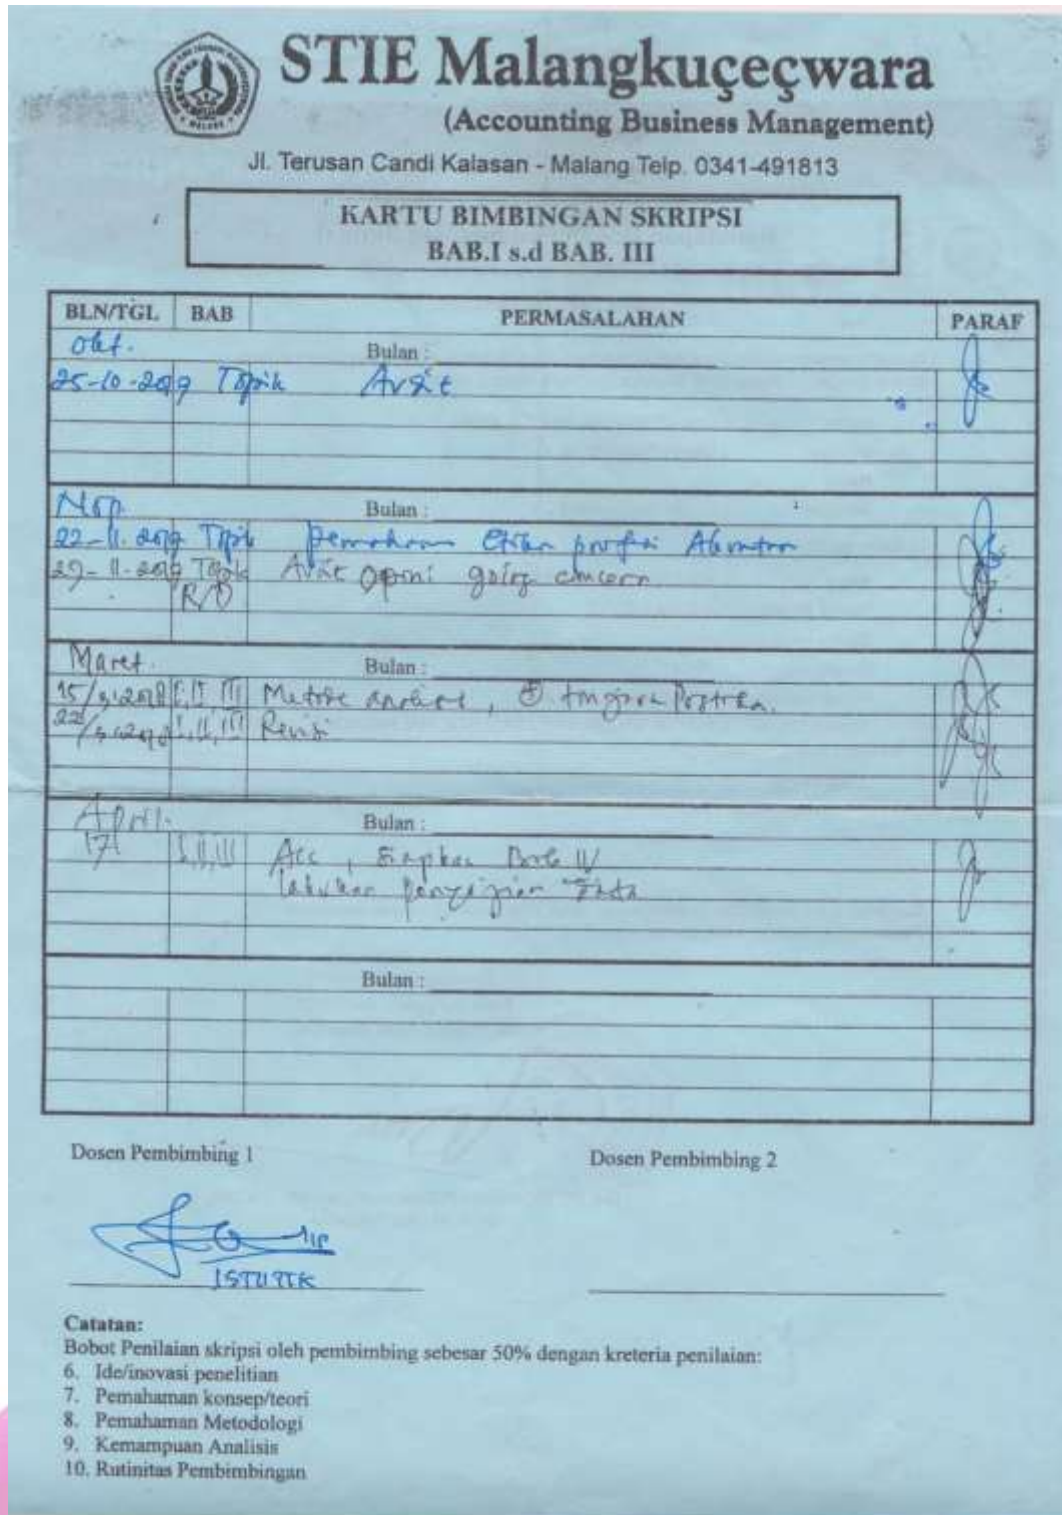 STIE Malangkuçeçwara
(Accounting Business Management)
Jl. Terusan Candi Kalasan - Malang Telp. 0341-491813
KARTU BIMBINGAN SKRIPSI
BAB.I s.d BAB. III
BLN/TGL BAB PERMASALAHAN PARAF
Okt. Bulan :
25-10-2019 Topik
Nop. Bulan :
22-11-2019 Topik Etika profesi
29-11-2019 Topik opini going concern
R/O
Maret. Bulan :
I, II, III Metode
22/ I, II, III Revisi
April. Bulan :
17/ I, II, III Acc, Siapkan Bab IV
lakukan pengujian Data
Bulan :
Dosen Pembimbing 1 Dosen Pembimbing 2
Catatan:
Bobot Penilaian skripsi oleh pembimbing sebesar 50% dengan kreteria penilaian:
6. Ide/inovasi penelitian
7. Pemahaman konsep/teori
8. Pemahaman Metodologi
9. Kemampuan Analisis
10. Rutinitas Pembimbingan